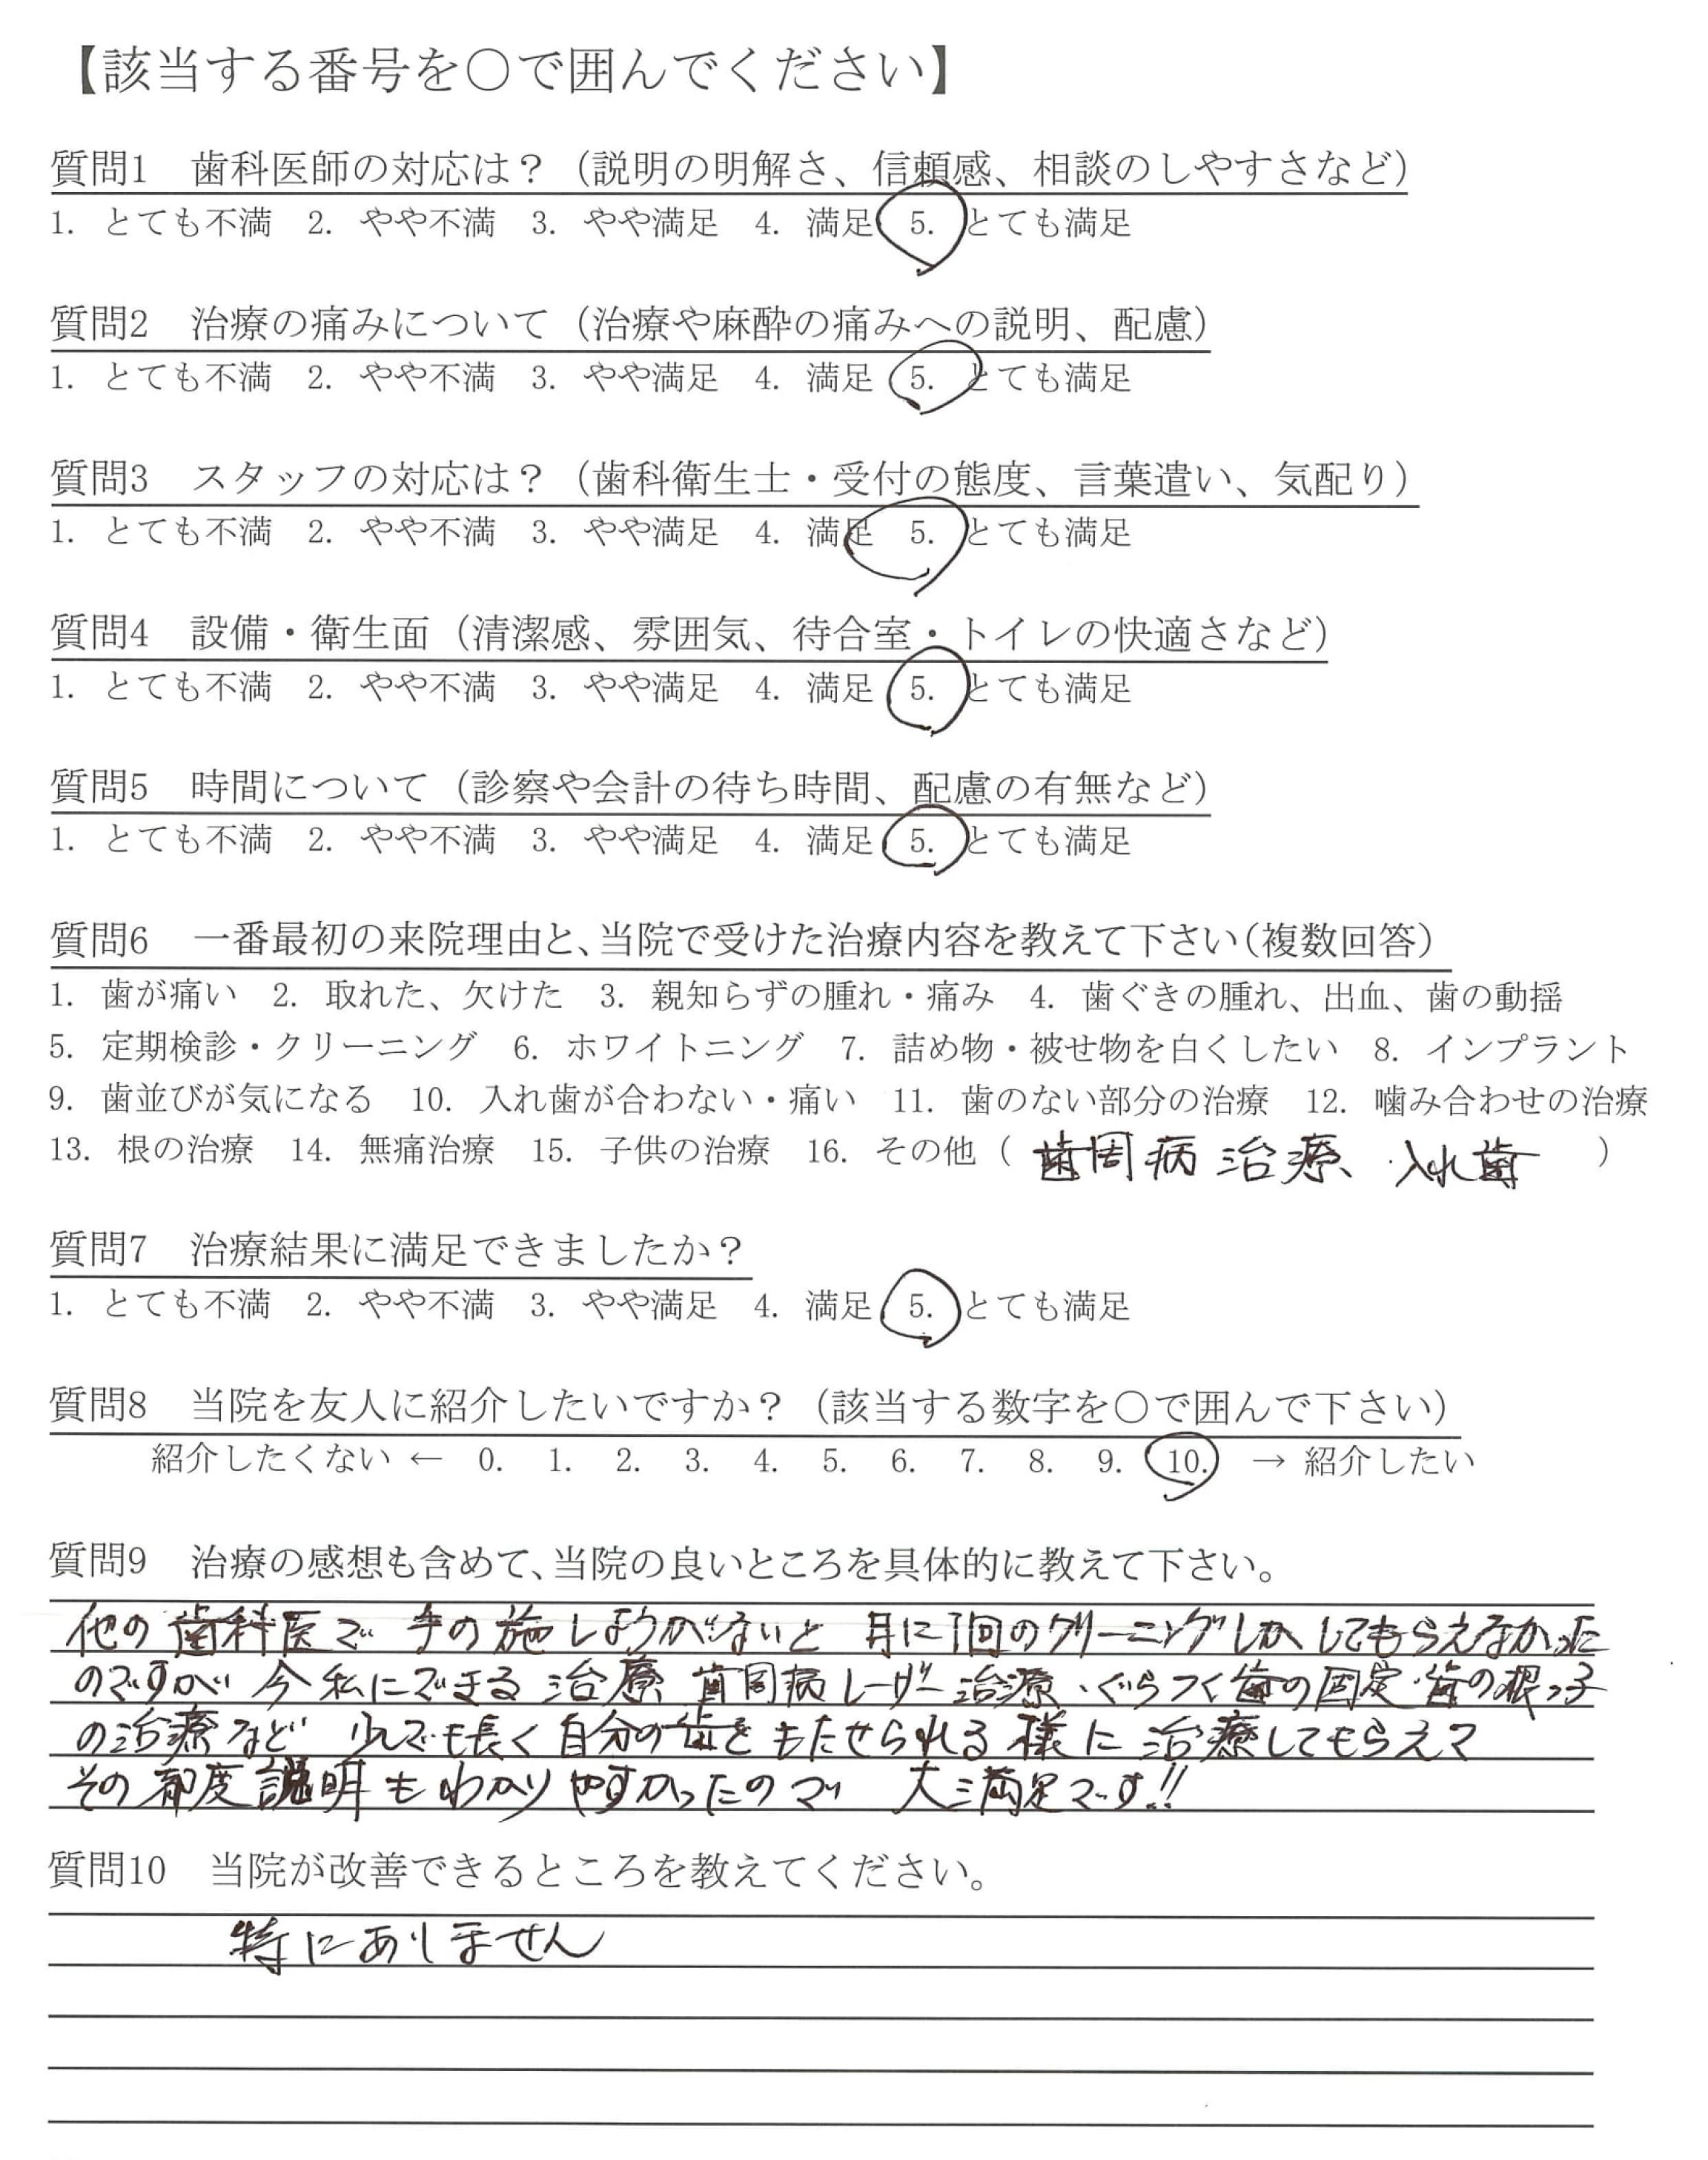 【該当する番号を○で囲んでください】
質問1 歯科医師の対応は？（説明の明解さ、信頼感、相談のしやすさなど）
1. とても不満 2. やや不満 3. やや満足 4. 満足 5. とても満足
質問2 治療の痛みについて（治療や麻酔の痛みへの説明、配慮）
1. とても不満 2. やや不満 3. やや満足 4. 満足 5. とても満足
質問3 スタッフの対応は？（歯科衛生士・受付の態度、言葉遣い、気配り）
1. とても不満 2. やや不満 3. やや満足 4. 満足 5. とても満足
質問4 設備・衛生面（清潔感、雰囲気、待合室・トイレの快適さなど）
1. とても不満 2. やや不満 3. やや満足 4. 満足 5. とても満足
質問5 時間について（診察や会計の待ち時間、配慮の有無など）
1. とても不満 2. やや不満 3. やや満足 4. 満足 5. とても満足
質問6 一番最初の来院理由と、当院で受けた治療内容を教えて下さい（複数回答）
1. 歯が痛い 2. 取れた、欠けた 3. 親知らずの腫れ・痛み 4. 歯ぐきの腫れ、出血、歯の動揺
5. 定期検診・クリーニング 6. ホワイトニング 7. 詰め物・被せ物を白くしたい 8. インプラント
9. 歯並びが気になる 10. 入れ歯が合わない・痛い 11. 歯のない部分の治療 12. 噛み合わせの治療
13. 根の治療 14. 無痛治療 15. 子供の治療 16. その他（歯周病治療、入れ歯）
質問7 治療結果に満足できましたか？
1. とても不満 2. やや不満 3. やや満足 4. 満足 5. とても満足
質問8 当院を友人に紹介したいですか？（該当する数字を○で囲んで下さい）
紹介したくない ← 0. 1. 2. 3. 4. 5. 6. 7. 8. 9. 10. → 紹介したい
質問9 治療の感想も含めて、当院の良いところを具体的に教えて下さい。
他の歯科医で 手の施しようがないと 月に1回のクリーニングしか してもらえなかった
のですが 今 私にできる 治療 歯周病レーザー治療・ぐらつく歯の固定・歯の根っ子
の治療など 少しでも長く 自分の歯を もたせられる 様に 治療してもらえて
その都度 説明も わかりやすかったので 大満足です!!
質問10 当院が改善できるところを教えてください。
特にありません